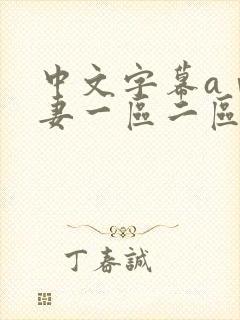 中文字幕a
妻一區二區
丁春誠